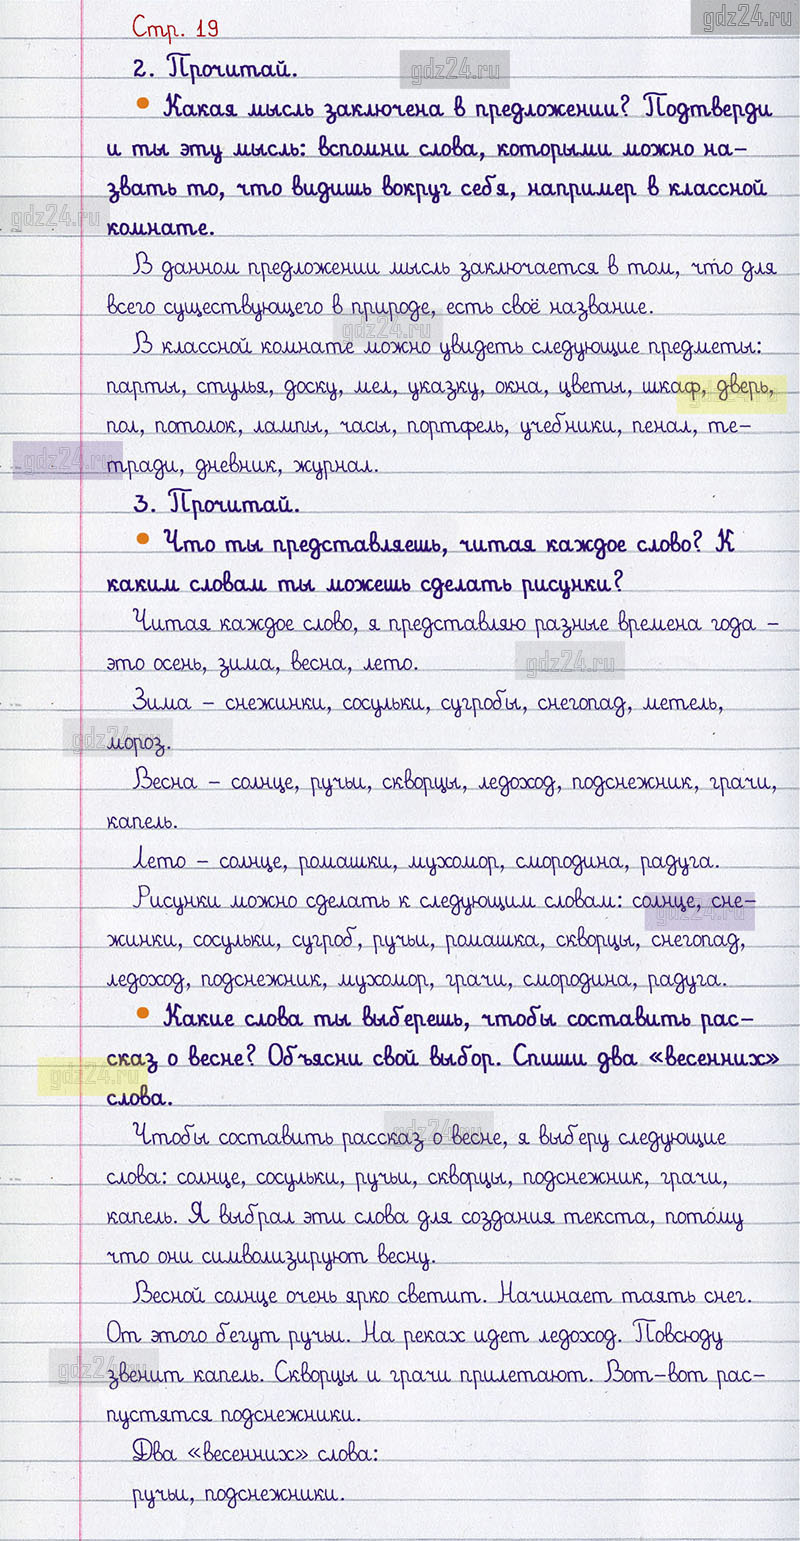 Стр. 19
gdz24.ru
2. Прочитай.
gdz24.ru
• Какая мысль заключена в предложении? Подтверди
и ты эту мысль: вспомни слова, которыми можно на-
звать то, что видишь вокруг себя, например в классной
gdz24.ru
комнате.
В данном предложении мысль заключается в том, что для
всего существующего в природе, есть своё название.
gdz24.ru
В классной комнате можно увидеть следующие предметы:
парты, стулья, доску, мел, указку, окна, цветы, шкаф, дверь,
gdz24.ru
пол, потолок, лампы, часы, портфель, учебники, пенал, те-
gdz24.ru
тради, дневник, журнал.
3. Прочитай.
• Что ты представляешь, читая каждое слово? К
каким словам ты можешь сделать рисунки?
Читая каждое слово, я представляю разные времена года –
это осень, зима, весна, лето.
gdz24.ru
Зима – снежинки, сосульки, сугробы, снегопад, метель,
gdz24.ru
мороз.
Весна – солнце, ручьи, скворцы, ледоход, подснежник, грачи,
капель.
Лето – солнце, ромашки, мухомор, смородина, радуга.
Рисунки можно сделать к следующим словам: солнце, сне-
gdz24.ru
жинки, сосульки, сугроб, ручьи, ромашка, скворцы, снегопад,
ледоход, подснежник, мухомор, грачи, смородина, радуга.
• Какие слова ты выберешь, чтобы составить рас-
сказ о весне? Объясни свой выбор. Спиши два «весенних»
gdz24.ru
слова.
Чтобы составить рассказ о весне, я выберу следующие
gdz24.ru
слова: солнце, сосульки, ручьи, скворцы, подснежник, грачи,
капель. Я выбрал эти слова для создания текста, потому
что они символизируют весну.
Весной солнце очень ярко светит. Начинает таять снег.
От этого бегут ручьи. На реках идет ледоход. Повсюду
gdz24.ru
звенит капель. Скворцы и грачи прилетают. Вот-вот рас-
пустятся подснежники.
Два «весенних» слова:
ручьи, подснежники.